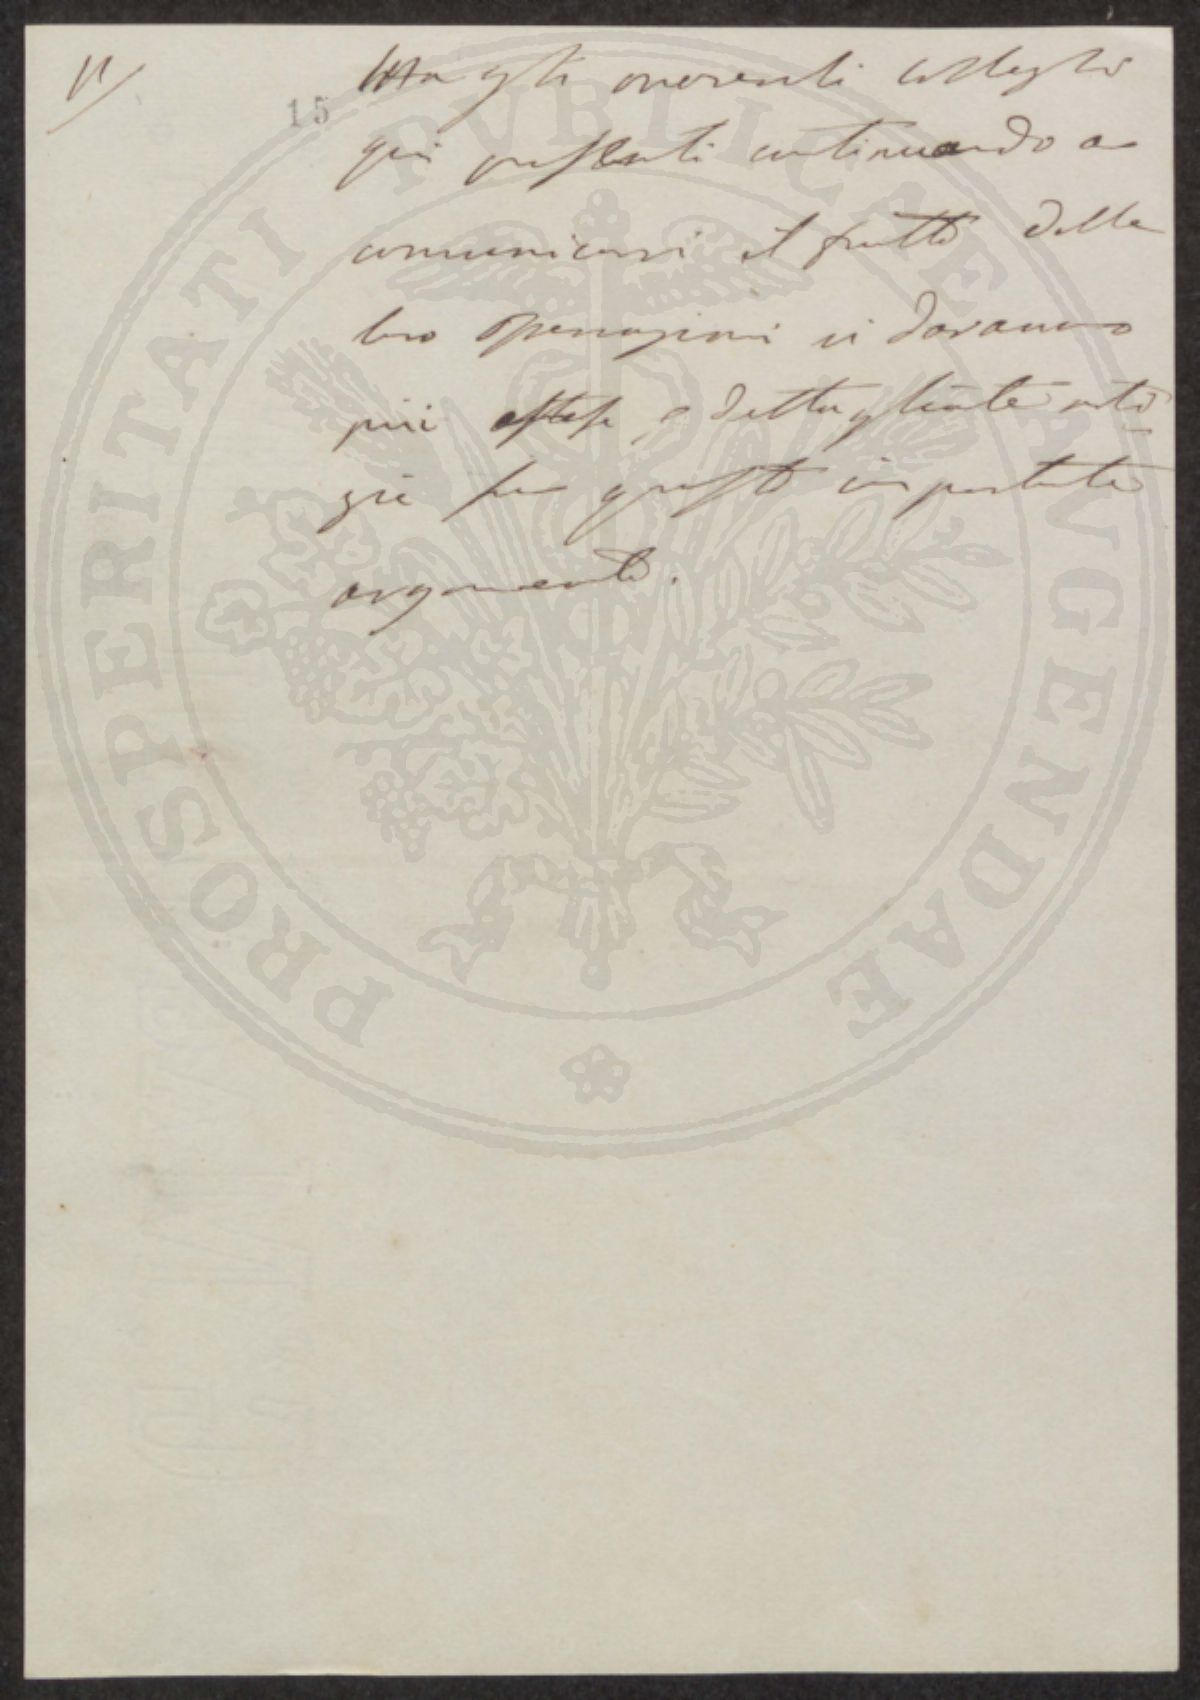 11/
15
Ma gli onorevoli colleghi
qui presenti continuando a
comunicarci il frutto delle
loro operazioni ci daranno
più estese e dettagliate noti
zie su questo importante
argomento.
PROSPERITATI PVBLICAE AVGENDAE